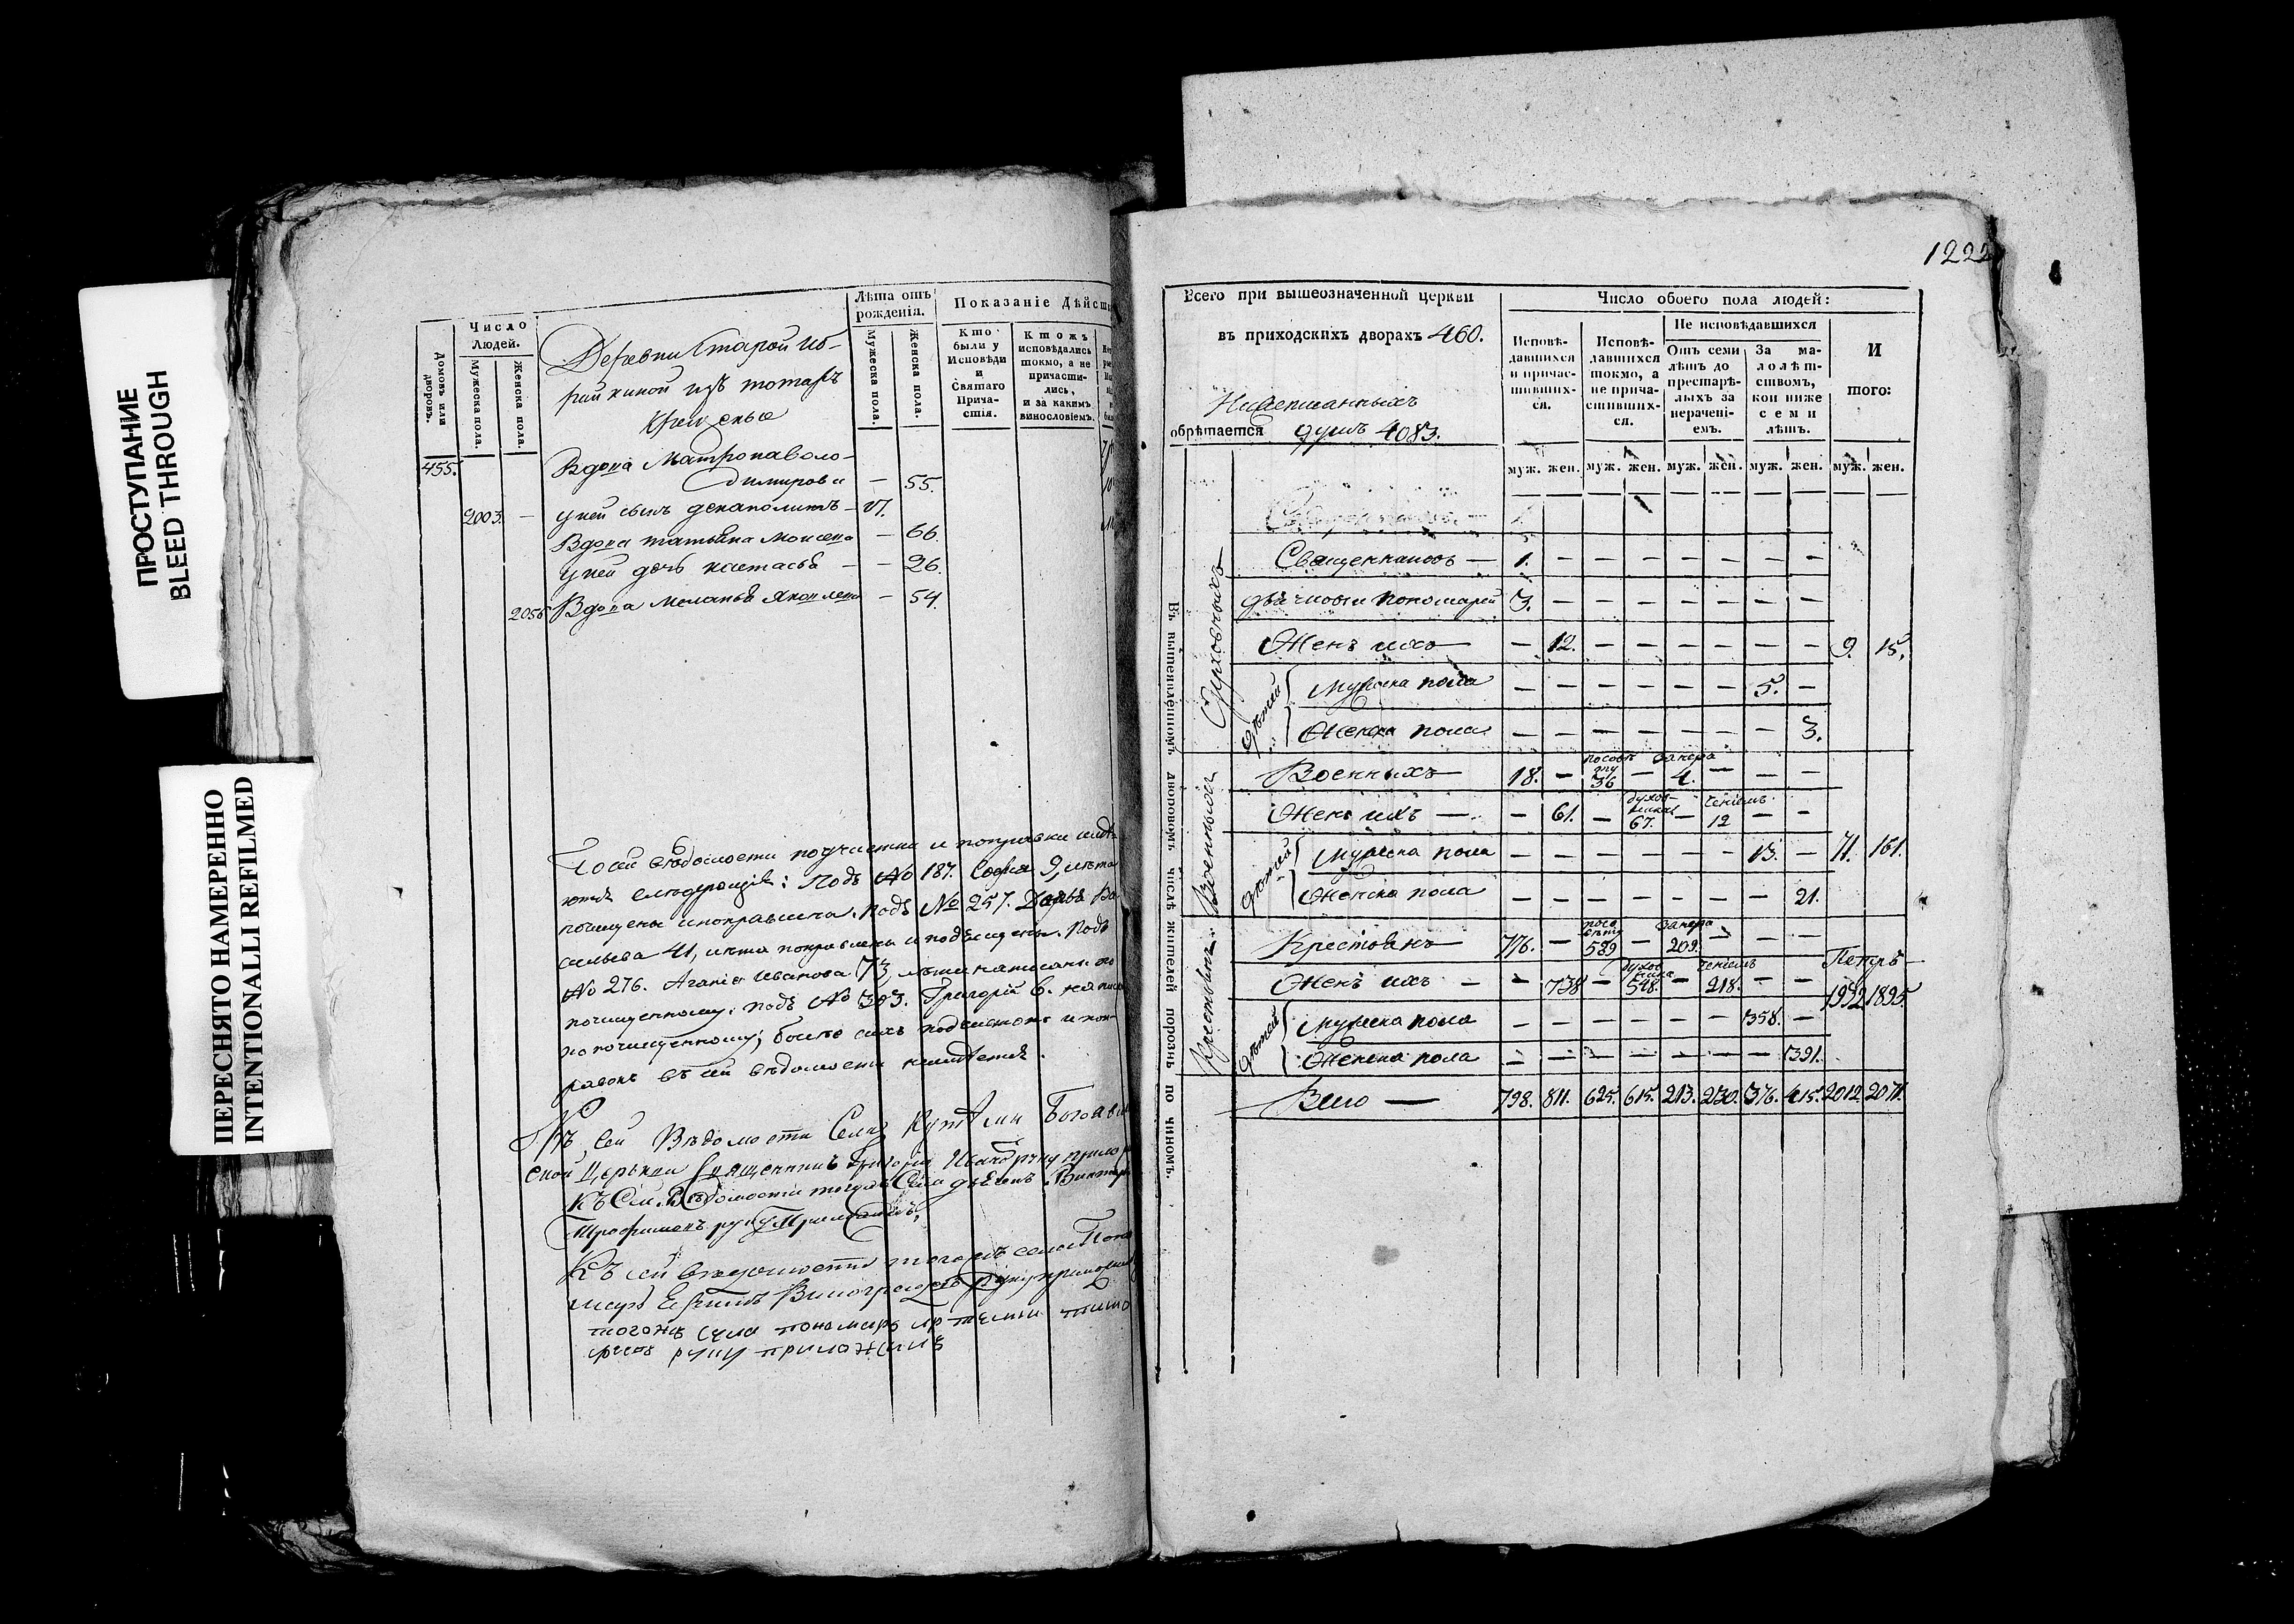 ПРОСТУПАНИЕ
BLEED THROUGH
ПЕРЕСНЯТО НАМЕРЕННО
INTENTIONALLI REFILMED
Домовъ или дворовъ.
Число Людей.
Мужеска пола.
Женска пола.
Деревни Старой Иб-
райкиной изъ тотаръ
крещеные
Лѣта отъ рожденія.
Мужеска пола.
Женска пола.
Показаніе Дѣйст
Кто были у Исповѣди и Святаго Причастія.
Ктожъ исповѣдались токмо, а не причастились, и за какимъ винословіемъ.
455.
Вдова Матрона Воло-
димирова — 55.
2003. — у ней сынъ — 17.
Вдова татьяна Моисева — 66.
у ней дочь настасья — — 26.
2056 Вдова Меланья Яковлева — 54.
По сей вѣдомости подчистки и поправки имѣ-
ются слѣдующія: Подъ № 187. Софья 9, лѣта
почищены и поправлены. подъ № 257. Дарья Ва-
сильева 41, лѣта поправлены и подчищены. Подъ
№ 276. Аганія Иванова 73, лѣта написаны по
почищенному. подъ № 303. Григорій 6. написа
по почищенному; болѣе сихъ подчистокъ и поп-
равокъ въ сей вѣдомости неимѣется.
Къ сей Вѣдомости Села Богоявлен
ской Церькви Священникъ Григорій Ивановъ руку прило
Къ Сей Вѣдомости тогожъ Села дьячекъ Викторъ
Трофимовъ руку Приложилъ,
Къ сей вѣдомости тогожъ села Поно
марь Ефимъ Виноградовъ руку приложилъ
тогожъ села пономарь
руку приложилъ
1222
Всего при вышеозначенной церкви
въ приходскихъ дворахъ 460.
Нижеписанныхъ
обрѣтается душъ 4083.
Число обоего пола людей:
Исповѣдавшихся и причастившихся.
Исповѣдавшихся токмо, а не причастившихся.
Не исповѣдавшихся
Отъ семи лѣтъ до престарѣлыхъ за нераченіемъ.
За малолѣтствомъ, кои ниже семи лѣтъ.
И того:
муж. жен. муж. жен. муж. жен. муж. жен. муж. жен.
Въ вышеявленномъ дворовомъ числѣ жителей порознь по чиномъ.
Духовныхъ
Священниковъ — 1. — — — — — — —
Дьячковъ и Пономарей 3. — — — — — — —
Женъ ихъ — — 12. — — — — — — 9. 15.
Дѣтей
Мужеска пола — — — — — — 5. —
Женска пола — — — — — — — 3.
Военныхъ
Военныхъ — 18. — по совѣту 36 — занера 4. — — —
Женъ ихъ — — 61. — духовника 67. — ченіемъ 12 — —
Дѣтей
Мужеска пола — — — — — — 13. — 71. 161.
Женска пола — — — — — — — 21.
Крестьянъ
Крестьянъ — 776. — по совѣту 589 — занера 209. — — —
Женъ ихъ — — 738 — духовника 548. — ченіемъ 218. — —
1932 1895.
Дѣтей
Мужеска пола — — — — — — 358. —
Женска пола — — — — — — — 391.
Всего — 798. 811. 625. 615. 213. 230. 376. 415. 2012. 2071.